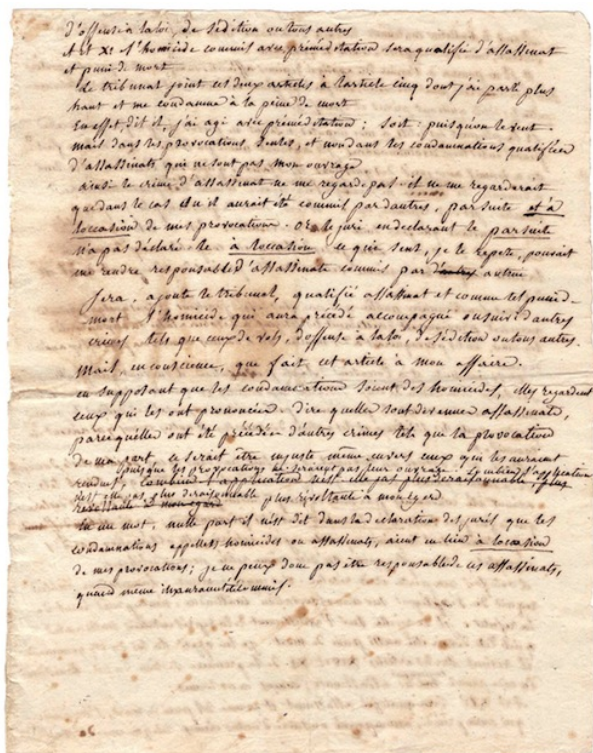 d'offense à la loi, de sédition ou tous autres
et XI l'homicide commis avec préméditation sera qualifié d'assassinat
et puni de mort
Le tribunal joint ces deux articles à l'article cinq dont j'ai parlé plus
haut et me condamne à la peine de mort
En effet, dit il, j'ai agi avec préméditation : soit : puisqu'on le veut.
mais dans les provocations seules, et non dans les condamnations qualifiées
d'assassinats qui ne sont pas mon ouvrage
ainsi le crime d'assassinat ne me regarde pas. il ne me regarderait
que dans le cas où il aurait été commis par d'autres, par suite et à
l'occasion de mes provocations. Or le juri en declarant le par suite
n'a pas déclaré le à l'occasion ce qui seul, je le repete, pouvait
me rendre responsable d'assassinats commis par d'autres autrui
Sera, ajoute le tribunal, qualifié assassinat et comme tel puni de
mort l'homicide qui aura précédé accompagné ou suivi d'autres
crimes tels que ceux de vols, d'offense à la loi, de sédition ou tous autres.
Mais, en conscience, que fait cet article à mon affaire.
en supposant que les condamnations soient des homicides, elles regardent
ceux qui les ont prononcées. dire qu'elles sont devenues assassinats,
parce qu'elles ont été précédées d'autres crimes tels que la provocation
de ma part, ce serait être injuste même envers ceux qui les auraient
puisque les provocations ne seraient pas leur ouvrage. combien l'application
rendues, combien l'application n'est elle pas plus deraisonnable, plus
n'est elle pas plus deraisonnable plus revoltante à mon egard
revoltante à mon egard
En un mot, nulle part il n'est dit dans la declaration des jurés que les
condamnations appellées homicides ou assassinats, aient eu lieu à l'occasion
de mes provocations; je ne peux donc pas être responsable de ces assassinats,
quand même ils auraient été commis.